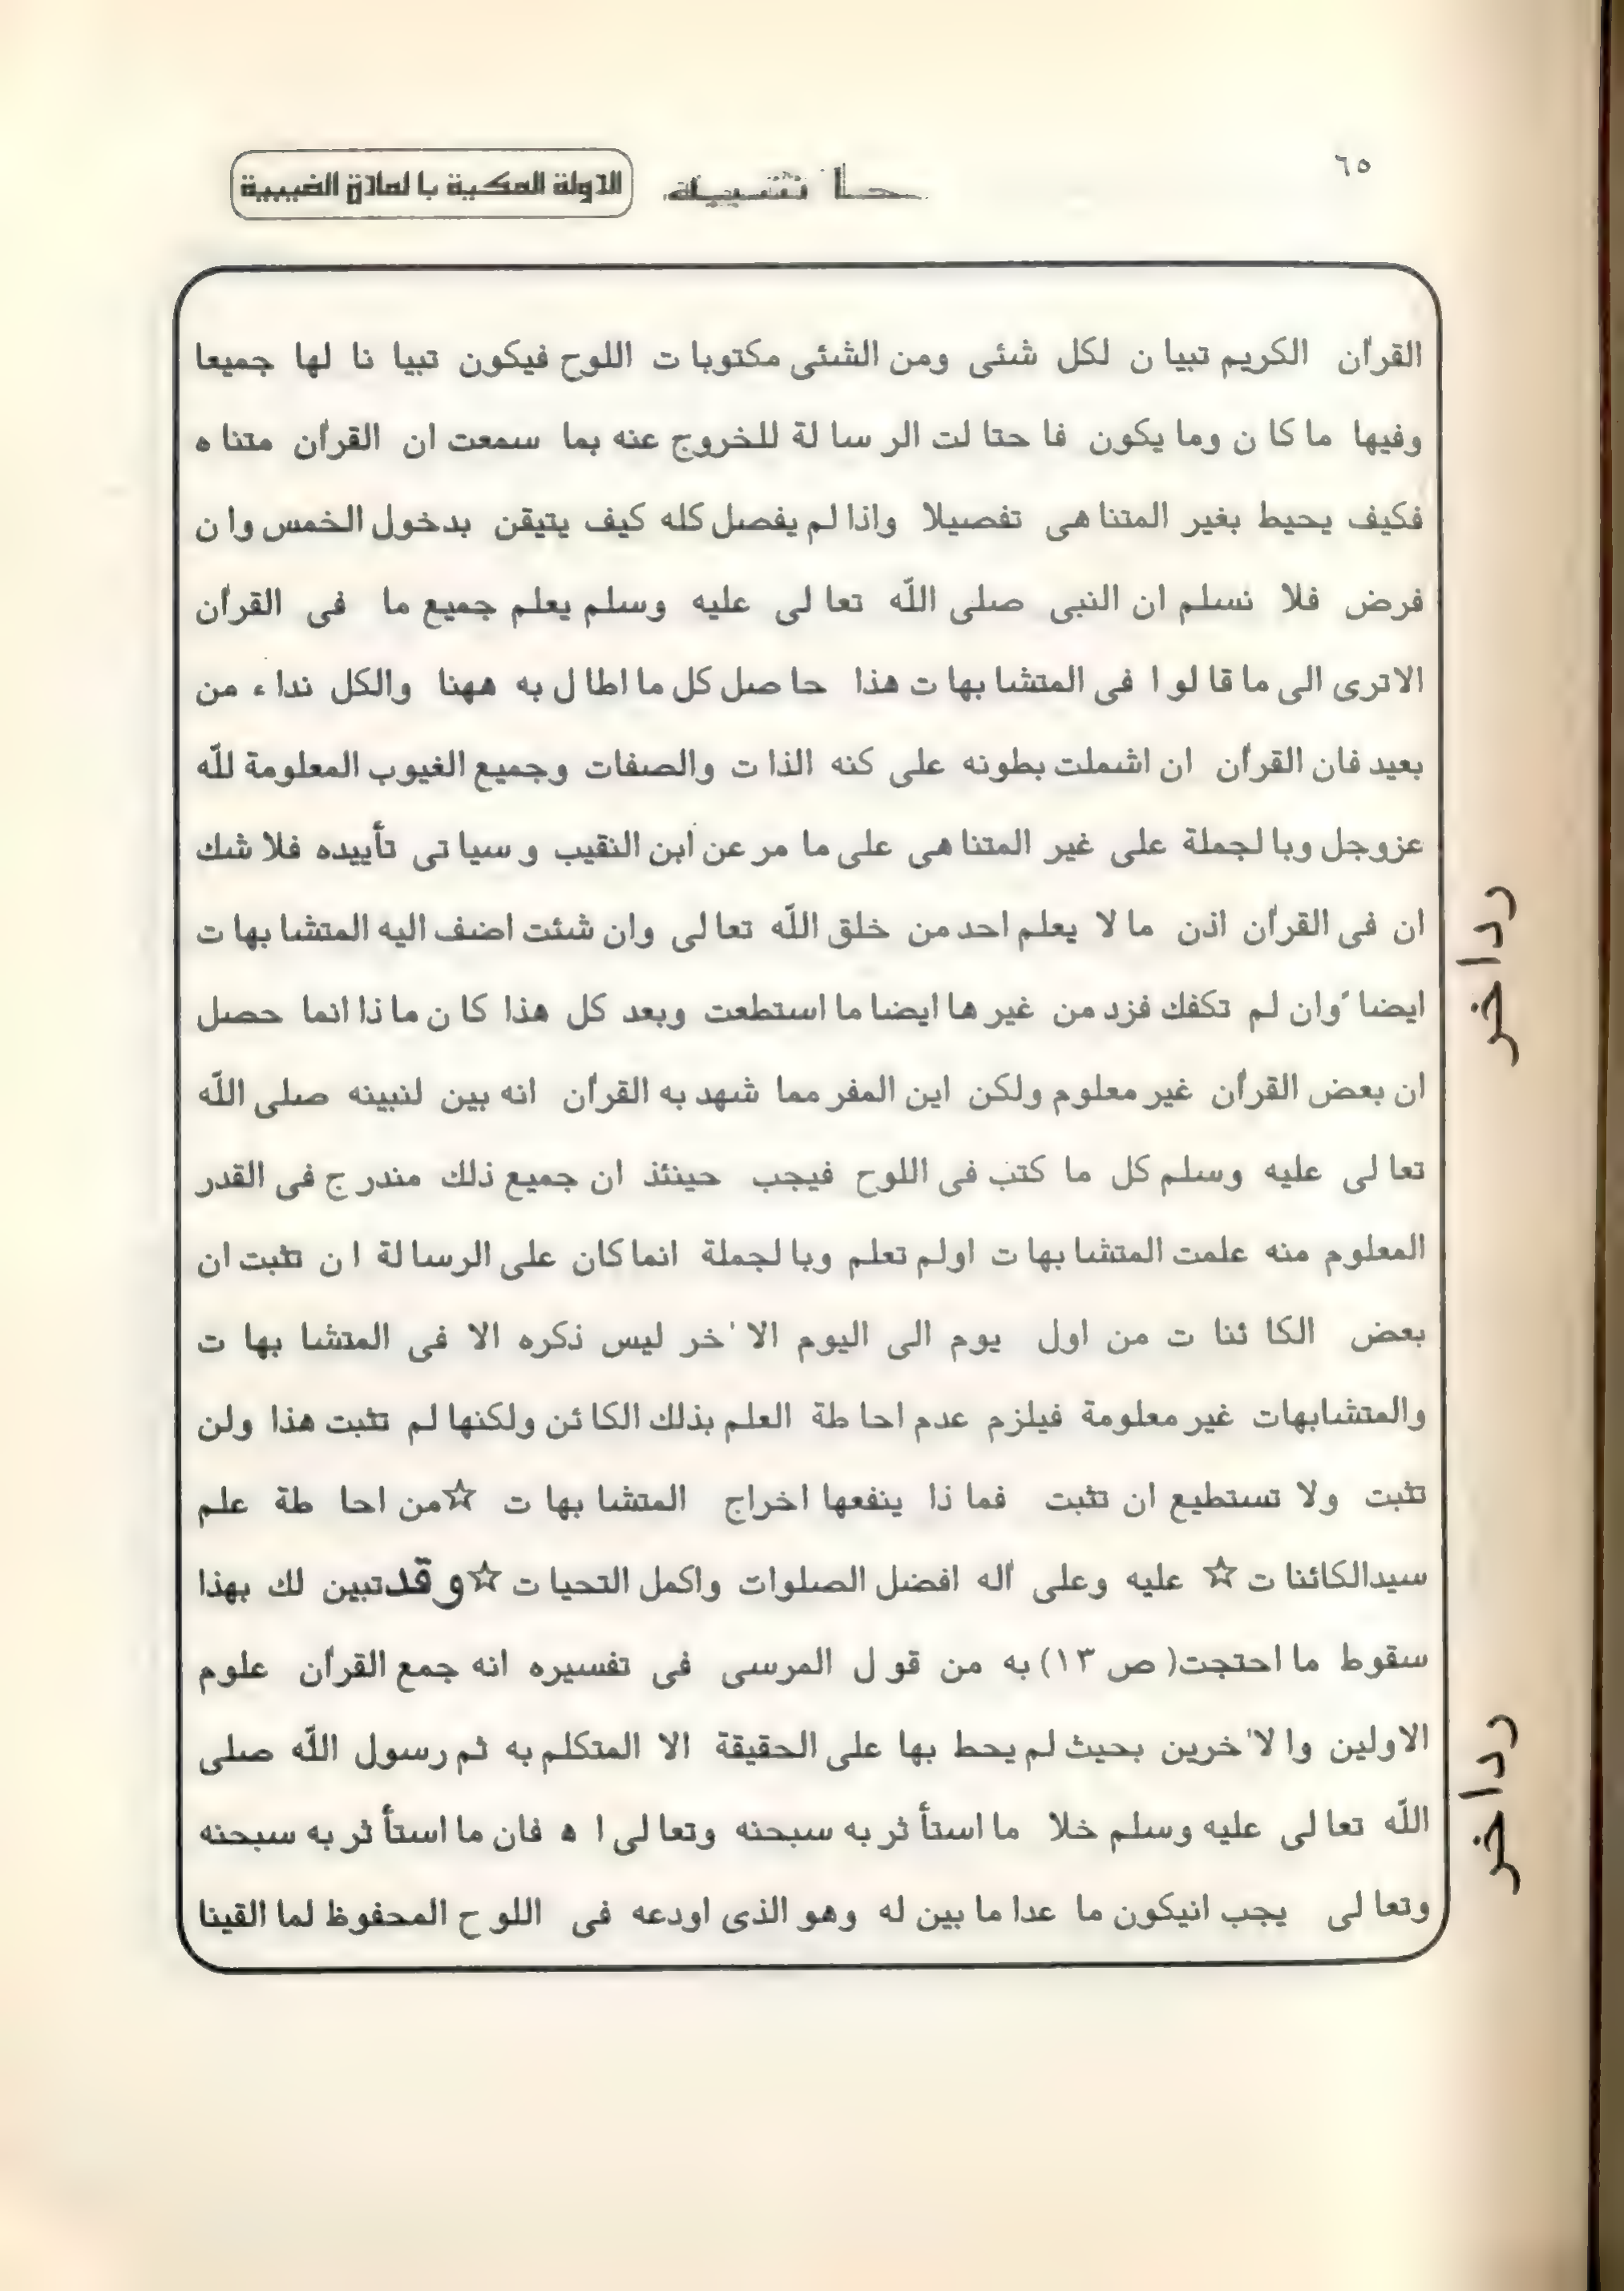 ٦٥
حاشيه
الدولة المكية بالمادة الغيبية
القرآن الكريم تبيان لكل شئى ومن الشئى مكتوبات اللوح فيكون تبيانا لها جميعا
وفيها ما كان وما يكون فاحتالت الرسالة للخروج عنه بما سمعت ان القرآن متناه
فكيف يحيط بغير المتناهى تفصيلا واذا لم يفصل كله كيف يتيقن بدخول الخمس وان
فرض فلا نسلم ان النبى صلى اللّه تعالى عليه وسلم يعلم جميع ما فى القرآن
الاترى الى ما قالوا فى المتشابهات هذا حاصل كل ما اطال به ههنا والكل نداء من
بعيد فان القرآن ان اشملت بطونه على كنه الذات والصفات وجميع الغيوب المعلومة للّه
عزوجل وبالجملة على غير المتناهى على ما مر عن ابن النقيب وسياتى تأييده فلا شك
ان فى القرآن اذن مالا يعلم احد من خلق اللّه تعالى وان شئت اضف اليه المتشابهات
ايضا ًوان لم تكفك فزد من غيرها ايضا ما استطعت وبعد كل هذا كان ماذا انما حصل
ان بعض القرآن غير معلوم ولكن اين المفر مما شهد به القرآن انه بين لنبينه صلى اللّه
تعالى عليه وسلم كل ما كتب فى اللوح فيجب حينئذ ان جميع ذلك مندرج فى القدر
المعلوم منه علمت المتشابهات اولم تعلم وبالجملة انما كان على الرسالة ان تثبت ان
بعض الكائنات من اول يوم الى اليوم الا ٰخر ليس ذكره الا فى المتشابهات
والمتشابهات غير معلومة فيلزم عدم احاطة العلم بذلك الكائن ولكنها لم تثبت هذا ولن
تثبت ولا تستطيع ان تثبت فماذا ينفعها اخراج المتشابهات ☆من احاطة علم
سيدالكائنات☆ عليه وعلى آله افضل الصلوات واكمل التحيات☆وقدتبين لك بهذا
سقوط ما احتجت( ص ١٣) به من قول المرسى فى تفسيره انه جمع القرآن علوم
الاولين والا ٰخرين بحيث لم يحط بها على الحقيقة الا المتكلم به ثم رسول اللّه صلى
اللّه تعالى عليه وسلم خلا ما استأثر به سبحنه وتعالى اه فان ما استأثر به سبحنه
وتعالى يجب انيكون ما عدا ما بين له وهو الذى اودعه فى اللوح المحفوظ لما القينا
رداخر
رداخر